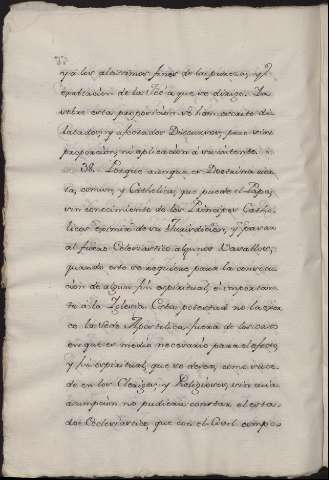 y à los altissimos fines de la pureza, y l
exaltacion de la Fee à que se dirige. So
vre esta proposicion se han escrito di
latados, y afectados Discursos, pero sin
proporcion, ni aplicacion à su intento.
38. Porque aunque es Doctrina
cta, comun, y Catholica, que puede el Papa,
sin consentimiento de los Principes Catho
licos eximir de su Jurisdicion, y passar
al fuero Eclesiastico algunos Vasallos,
quando esto se requiere para la consecu
cion de algun fin espiritual, ò importan
te à la Iglesia. Esta potestad no la exer
ce la Sede Apostolica, fuera de los casos
en que es medio necesario para el efecto,
y fin espiritual, que se desea, como suce
de en los Clerigos, y Religiosos, sin cuia
exempcion no pudiera constar el esta
do Eclesiastico, que con el Civil compo